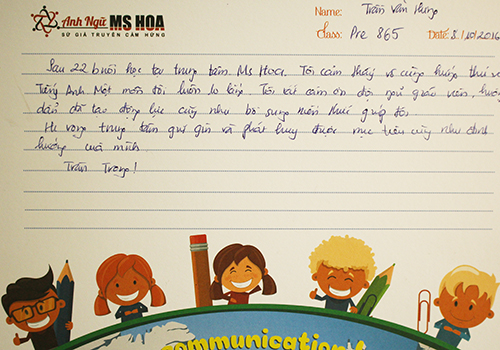 Anh Ngữ MS HOA
SỨ GIẢ TRUYỀN CẢM HỨNG
Name: Trần Văn Hưng
Class: Pre 865 Date: 8/10/2016
Sau 22 buổi học tại trung tâm Ms Hoa. Tôi cảm thấy vô cùng hứng thú
Tiếng Anh Một môn tôi luôn lo lắng. Tôi rất cảm ơn đội ngũ giáo viên, hướ
dẫn đã tạo động lực cũng như bổ sung kiến thức giúp tôi.
Hi vọng trung tâm giữ gìn và phát huy được mục tiêu cũng như định
hướng của mình.
Trân Trọng!
communication